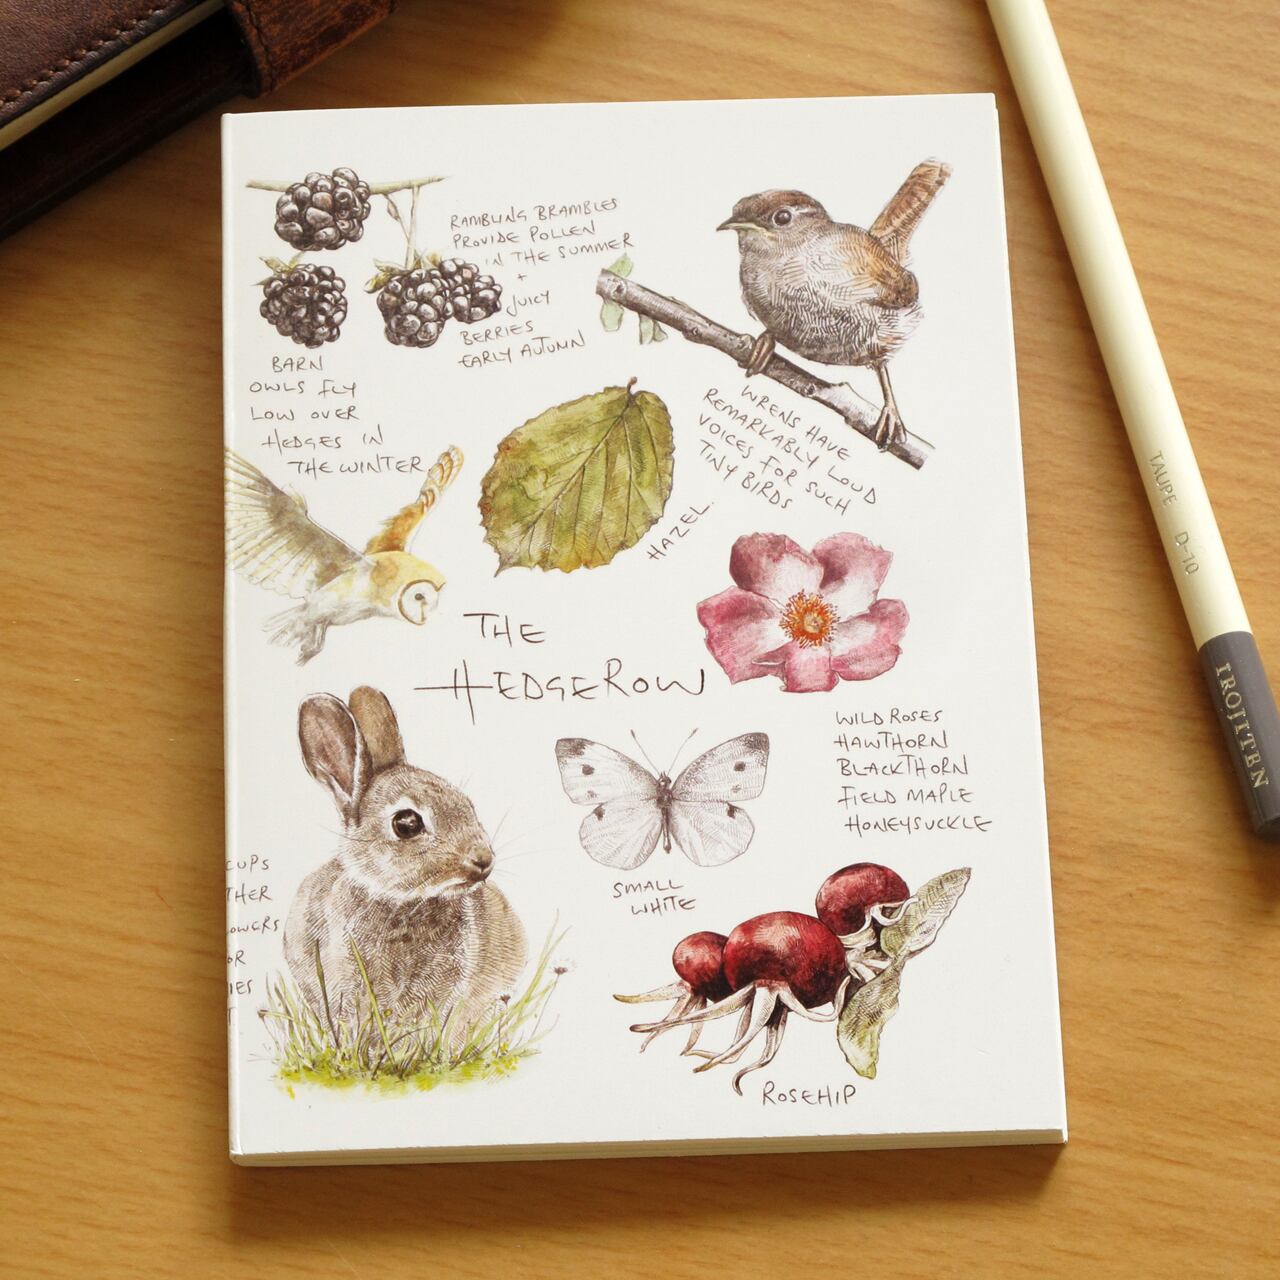 RAMBLING BRAMBLES
PROVIDE POLLEN
IN THE SUMMER
+
JUICY
BERRIES
EARLY AUTUMN
BARN
OWLS FLY
LOW OVER
HEDGES IN
THE WINTER
WRENS HAVE
REMARKABLY LOUD
VOICES FOR SUCH
TINY BIRDS
HAZEL.
THE
HEDGEROW
WILD ROSES
HAWTHORN
BLACKTHORN
FIELD MAPLE
HONEYSUCKLE
SMALL
WHITE
CUPS
THER
OWERS
OR
IES
T
ROSEHIP
TAUPE D-10
IROJITEN